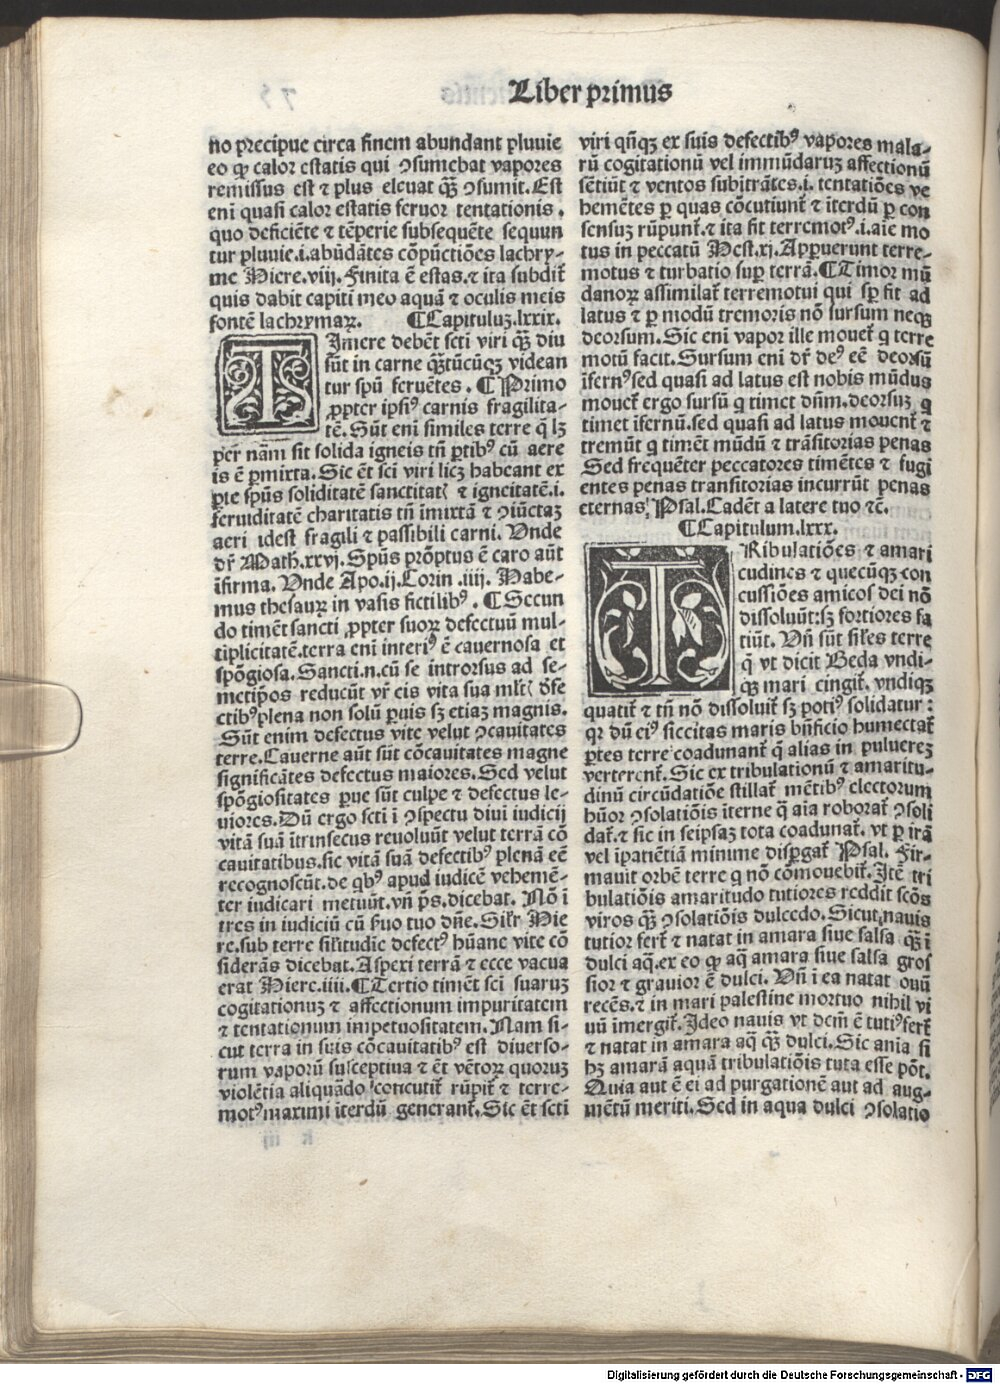 Liber primus
no precipue circa finem abundant pluuie
eo ꝙ calor estatis qui ꝯsumebat vapores
remissus est ⁊ plus eleuat qȝ̃ ꝯsumit. Est
eni quasi calor estatis feruor tentationis.
quo deficiẽte ⁊ tẽperie subsequẽte sequun
tur pluuie .i. abũdãtes cõpũctiões lachry-
me Hiere. viij. Finita ẽ estas. ⁊ ita subdit̃
quis dabit capiti meo aquã ⁊ oculis meis
fontẽ lachrymaꝝ. ¶ Capituluȝ. lxxix.
TImere debẽt scti viri qȝ̃ diu
sũt in carne qȝ̃tũcũqȝ videan
tur spũ feruẽtes. ¶ Primo
ꝓpter ipsiꝰ carnis fragilita-
tẽ. Sũt eni similes terre q̃ lȝ
per nãm sit solida igneis tñ ꝑtibꝰ cũ aere
is ẽ ꝑmixta. Sic ẽt sci viri licȝ habeant ex
ꝑte spũs soliditatẽ sanctitatꝭ ⁊ igneitatẽ .i.
feruiditatẽ charitatis tñ ĩmixtã ⁊ ꝯiũctaȝ
aeri idest fragili ⁊ passibili carni. Unde
dr̃ Math. xxvj. Spũs prõptus ẽ caro aũt
ĩfirma. Unde Apo. ij. Corin. iiij. Habe-
mus thesaurȝ in vasis fictilibꝰ. ¶ Secun
do timẽt sancti ꝓpter suoꝝ defectuũ mul-
tiplicitatẽ. terra eni interiꝰ ẽ cauernosa et
spõgiosa. Sancti .n. cũ se introrsus ad se-
metip̃os reducũt vr̃ eis vita sua ml̃tꝭ d̃fe
ctibꝰ plena non solũ ꝑuis sȝ etiaȝ magnis.
Sũt enim defectus vite velut ꝯcauitates
terre. Cauerne aũt sũt cõcauitates magne
significãtes defectus maiores. Sed velut
spõgiositates ꝑue sũt culpe ⁊ defectus le-
uiores. Dũ ergo scti ĩ ꝯspectu diui iudicij
vitã suã ĩtrinsecus reuoluũt velut terrã cõ
cauitatibus. sic vitã suã defectibꝰ plenã eẽ
recognoscũt. de qbꝰ apud iudicẽ vehemẽ-
ter iudicari metuũt. vñ p̃s. dicebat. Nõ ĩ
tres in iudiciũ cũ ẜuo tuo dñe. Silr̃ Hie
re. sub terre sil̃itudie defectꝰ hũane vite cõ
siderãs dicebat. Aspexi terrã ⁊ ecce vacua
erat Hiere. iiij. ¶ Tertio timẽt sci suaruȝ
cogitationuȝ ⁊ affectionum impuritatem
⁊ tentationum impetuositatem. Nam si-
cut terra in suis cõcauitatibꝰ est diuerso-
rum vaporũ susceptiua ⁊ ẽt vẽtoꝝ quoruȝ
violẽtia aliquãdo concutit̃ rũpit̃ ⁊ terre-
motꝰ maximi iterdũ generant̃. Sic ẽt scti
viri qñqȝ ex suis defectibꝰ vapores mala-
rũ cogitationũ vel immũdaruȝ affectionũ
sẽtiũt ⁊ ventos subitrãtes .i. tentatiões ve
hemẽtes ꝑ quas cõcutiunt̃ ⁊ iterdũ ꝑ con
sensuȝ rũpunt̃. ⁊ ita fit terremotꝰ .i. aĩe mo
tus in peccatũ Hest. xj. Apparuerunt terre-
motus ⁊ turbatio suꝑ terrã. ¶ Timor mũ
danoꝝ assimilat̃ terremotui qui sp̃ fit ad
latus ⁊ ꝑ modũ tremoris nõ sursum neqȝ
deorsum. Sic eni vapor ille mouet̃ q terre
motũ facit. Sursum eni dr̃ deꝰ eẽ deorsũ
ĩfernꝰ sed quasi ad latus est nobis mũdus
mouet̃ ergo sursũ q timet dñm. deorsuȝ q
timet ĩfernũ. sed quasi ad latus mouent̃ ⁊
tremũt q timẽt mũdũ ⁊ trãsitorias penas
Sed frequẽter peccatores timẽtes ⁊ fugi
entes penas transitorias incurrũt penas
eternas. Psal. Cadẽt a latere tuo ⁊c̃.
¶ Capitulum. lxxx.
TRibulatiões ⁊ amari
cudines ⁊ quecũqȝ con
cussiões amicos dei nõ
dissoluũt: sȝ fortiores fa
tiũt. Uñ sũt sil̃es terre
q̃ vt dicit Beda vndi-
qȝ mari cingit̃. vndiqȝ
quatit̃ ⁊ tñ nõ dissoluit̃ sȝ potiꝰ solidatur:
qꝛ dũ eiꝰ siccitas maris bñficio humectat̃
ꝑtes terre coadunant̃ q̃ alias in puluereȝ
verterent̃. Sic ex tribulationũ ⁊ amaritu-
dinũ circũdatiõe stillat̃ mẽtibꝰ electorum
hũor ꝯsolatiõis ĩterne q̃ aĩa roborat̃ ꝯsoli
dat̃. ⁊ sic in seipsaȝ tota coadunat̃. vt ꝑ irã
vel ĩpatiẽtiã minime disꝑgat̃ Psal. Fir-
mauit orbẽ terre q nõ cõmouebit̃. Itẽ tri
bulatiõis amaritudo tutiores reddit scõs
viros qȝ̃ ꝯsolatiõis dulcedo. Sicut nauis
tutior fert̃ ⁊ natat in amara siue salsa qȝ̃ ĩ
dulci aq̃. ex eo ꝙ aq̃ amara siue salsa gros
sior ⁊ grauior ẽ dulci. Uñ ĩ ea natat ouũ
recẽs. ⁊ in mari palestine mortuo nihil vi
uũ imergit̃. Ideo nauis vt dcm̃ ẽ tutiꝰ fert̃
⁊ natat in amara aq̃ qȝ̃ dulci. Sic ania si
hȝ amarã aquã tribulatiõis tuta esse põt.
Quia aut ẽ ei ad purgationẽ aut ad aug-
mẽtũ meriti. Sed in aqua dulci ꝯsolatio
Digitalisierung gefördert durch die Deutsche Forschungsgemeinschaft - DFG